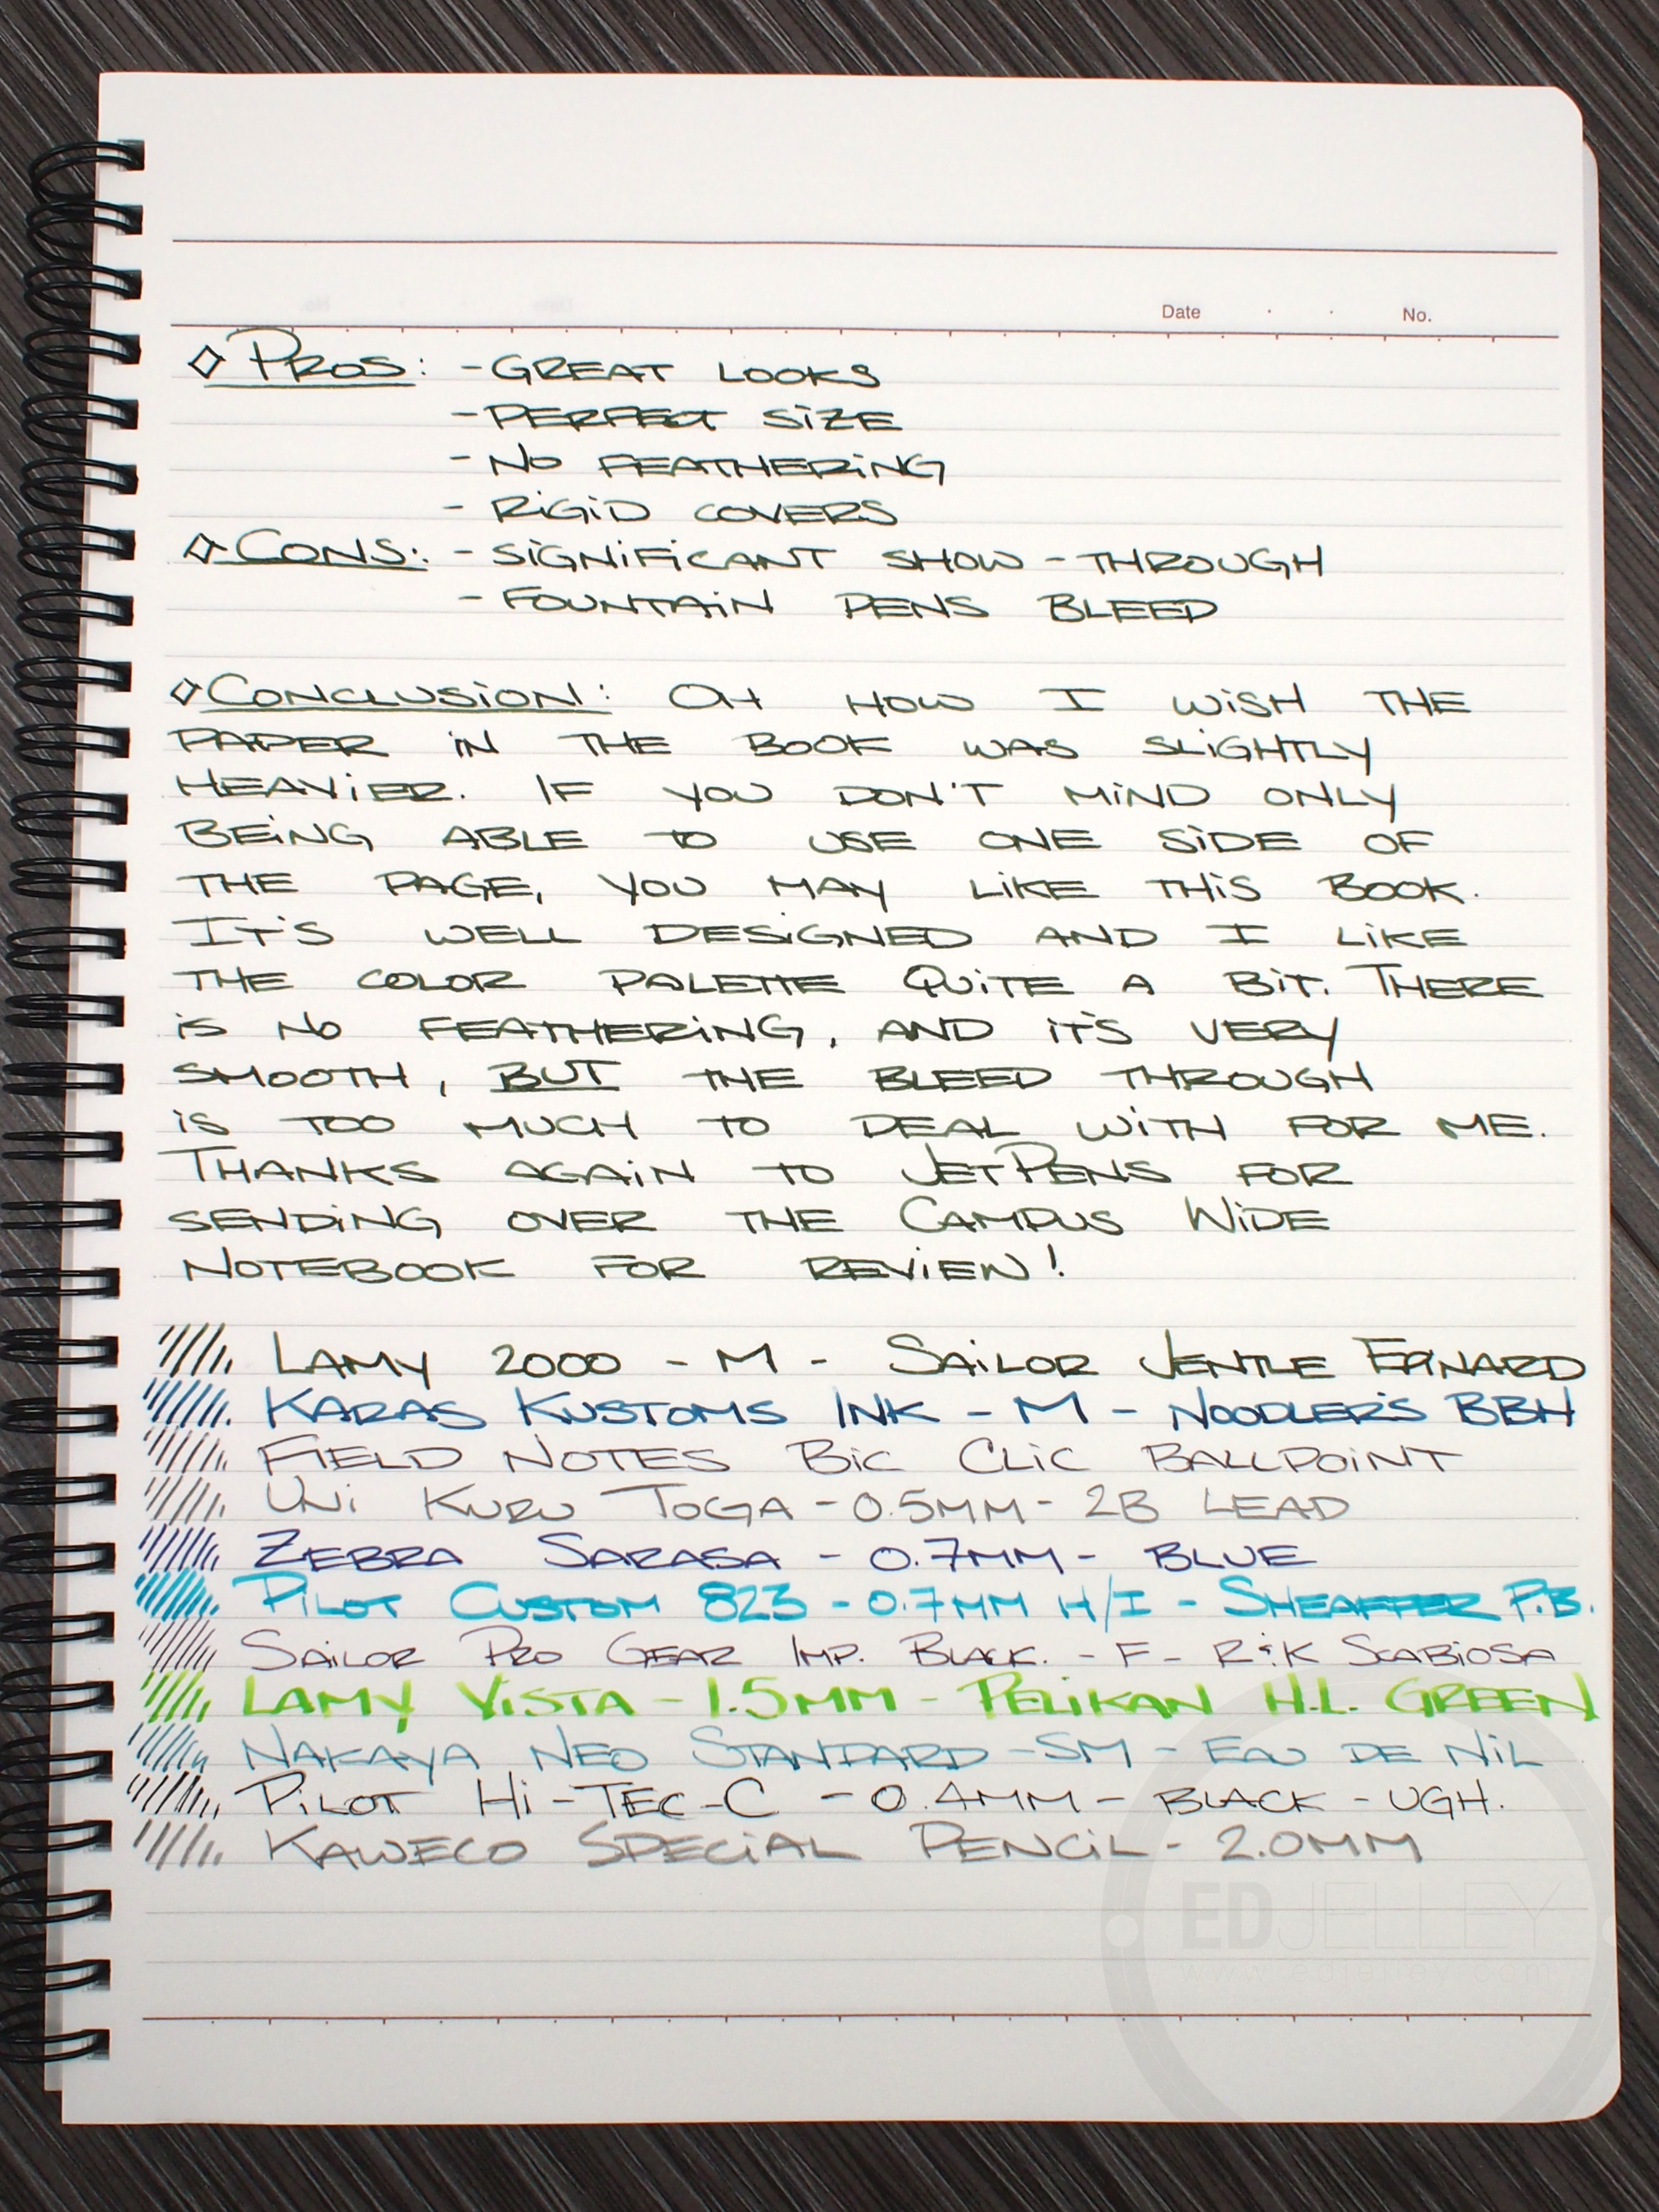 Date . . No.
◇ PROS: - GREAT LOOKS
- PERFECT SIZE
- NO FEATHERING
- RIGID COVERS
◇ CONS: - SIGNIFICANT SHOW-THROUGH
- FOUNTAIN PENS BLEED
◇ CONCLUSION: OH HOW I WISH THE
PAPER IN THE BOOK WAS SLIGHTLY
HEAVIER. IF YOU DON'T MIND ONLY
BEING ABLE TO USE ONE SIDE OF
THE PAGE, YOU MAY LIKE THIS BOOK.
IT'S WELL DESIGNED AND I LIKE
THE COLOR PALETTE QUITE A BIT. THERE
IS NO FEATHERING, AND IT'S VERY
SMOOTH, BUT THE BLEED THROUGH
IS TOO MUCH TO DEAL WITH FOR ME.
THANKS AGAIN TO JETPENS FOR
SENDING OVER THE CAMPUS WIDE
NOTEBOOK FOR REVIEW!
LAMY 2000 - M - SAILOR JENTLE EPINARD
KARAS KUSTOMS INK - M - NOODLER'S BBH
FIELD NOTES BIC CLIC BALLPOINT
UNI KURU TOGA - 0.5MM - 2B LEAD
ZEBRA SARASA - 0.7MM - BLUE
PILOT CUSTOM 823 - 0.7MM H/I - SHEAFFER P.B.
SAILOR PRO GEAR IMP. BLACK. - F - R&K SCABIOSA
LAMY VISTA - 1.5MM - PELIKAN H.L. GREEN
NAKAYA NEO STANDARD - SM - EAU DE NIL
PILOT HI-TEC-C - 0.4MM - BLACK - UGH.
KAWECO SPECIAL PENCIL - 2.0MM
EDJELLEY
www.edjelley.com